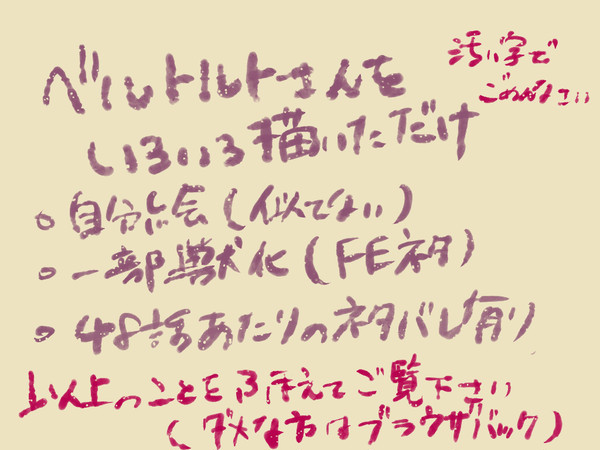 ベルトルトさんを
いろいろ描いただけ
汚い字で
ごめんなさい
○自分絵(似てない)
○一部獣化(FEネタ)
○48話あたりのネタバレ有り
以上のことをふまえてご覧下さい
(ダメな方はブラウザバック)